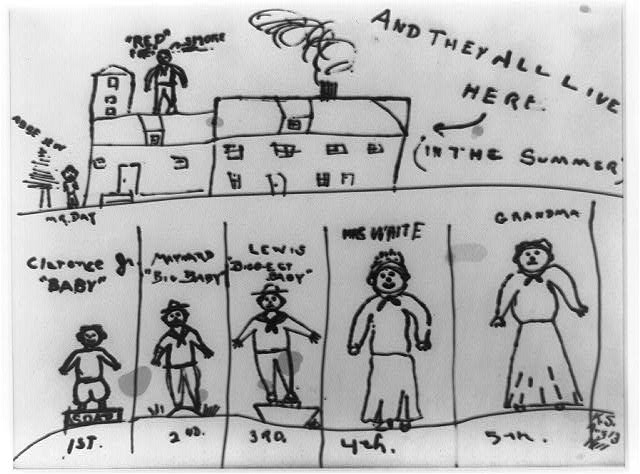 "RED" SMOKE
AND THEY ALL LIVE
HERE.
(IN THE SUMMER)
MR. DAY
Clarence Jr.
"BABY"
MAYNARD
"BIG BABY"
LEWIS
"BIGGEST
BABY"
MRS WHITE
GRANDMA
SOAP
1ST.
2ND.
3RD.
4th.
5th.
K.S.